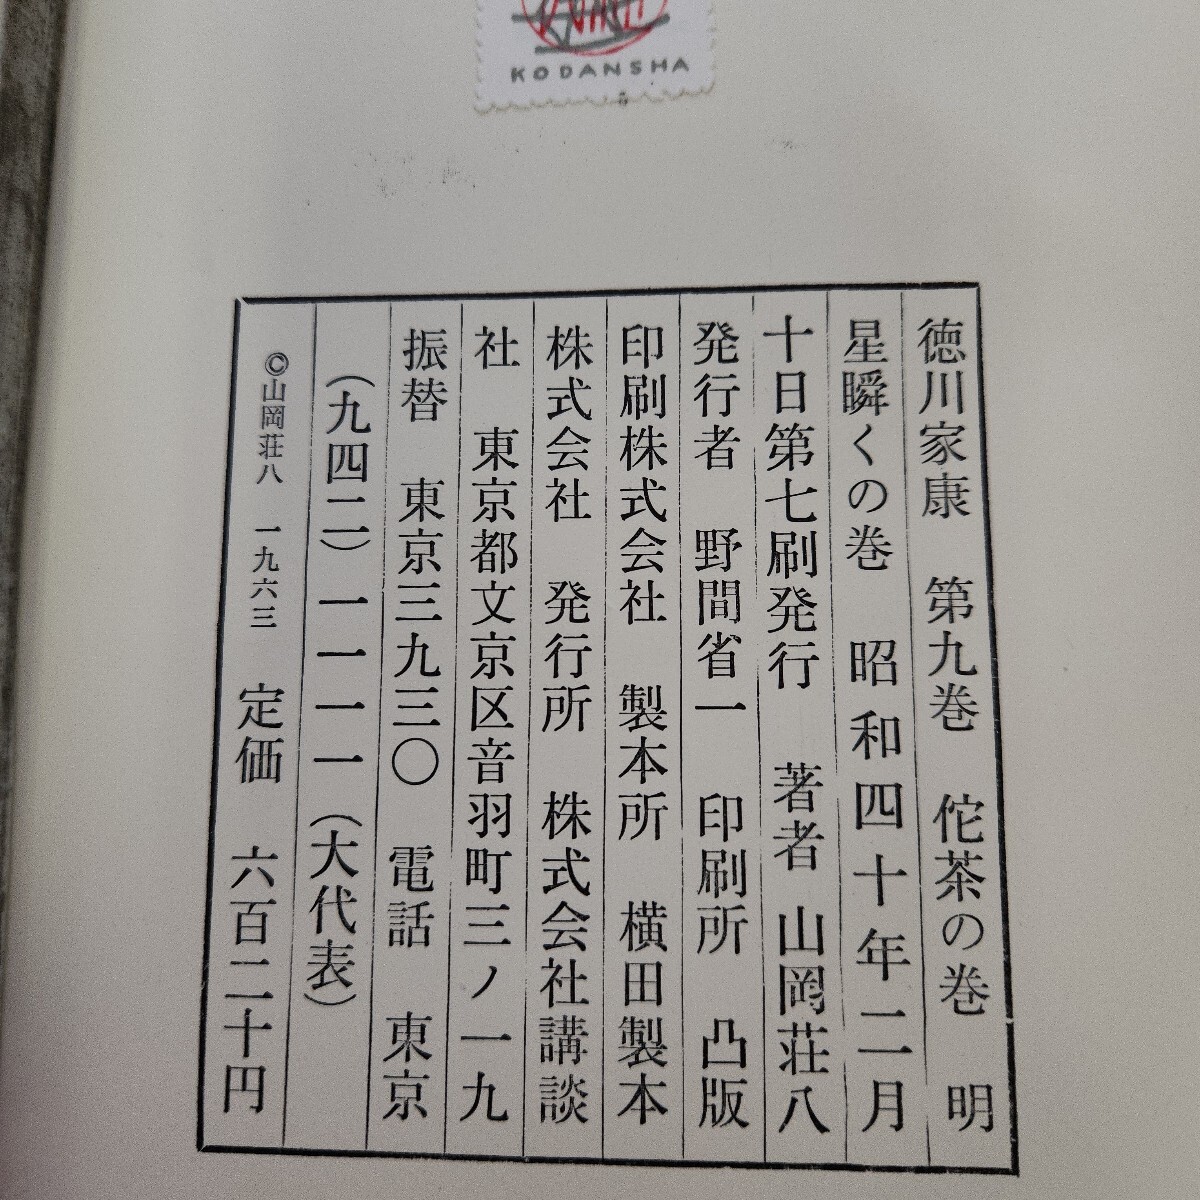 KODANSHA
徳川家康　第九巻　佗茶の巻　明
星瞬くの巻　昭和四十年二月
十日第七刷発行　著者　山岡荘八
発行者　野間省一　印刷所　凸版
印刷株式会社　製本所　横田製本
株式会社　発行所　株式会社講談
社　東京都文京区音羽町三ノ一九
振替　東京三九三〇　電話　東京
（九四二）一一一一（大代表）
©山岡荘八　一九六三　定価　六百二十円